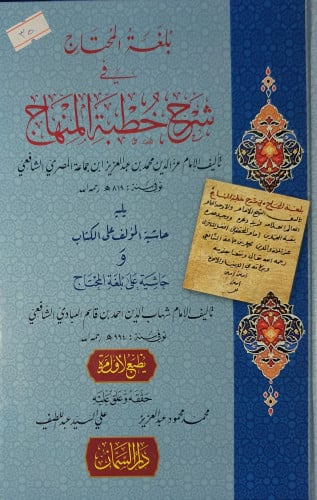 ٣٥
بلغة المحتاج
في
شرح خطبة المنهاج
تأليف الإمام عز الدين محمد بن عبد العزيز ابن جماعة المصري الشافعي
توفي سنة: ٨١٩هـ رحمه الله
يليه
حاشية المؤلف على الكتاب
و
حاشية على بلغة المحتاج
تأليف الإمام شهاب الدين أحمد بن قاسم العبادي الشافعي
توفي سنة: ٩٩٤هـ رحمه الله
يطبع لأول مرة
حققه وعلق عليه
محمد محمود عبد العزيز
علي السيد عبد اللطيف
دار السمان